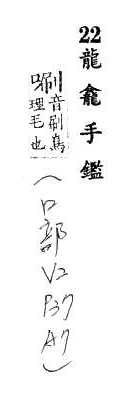 22 龍龕手鑑
唰 音刷鳥
理毛也
(口部 V2 P37 A7)